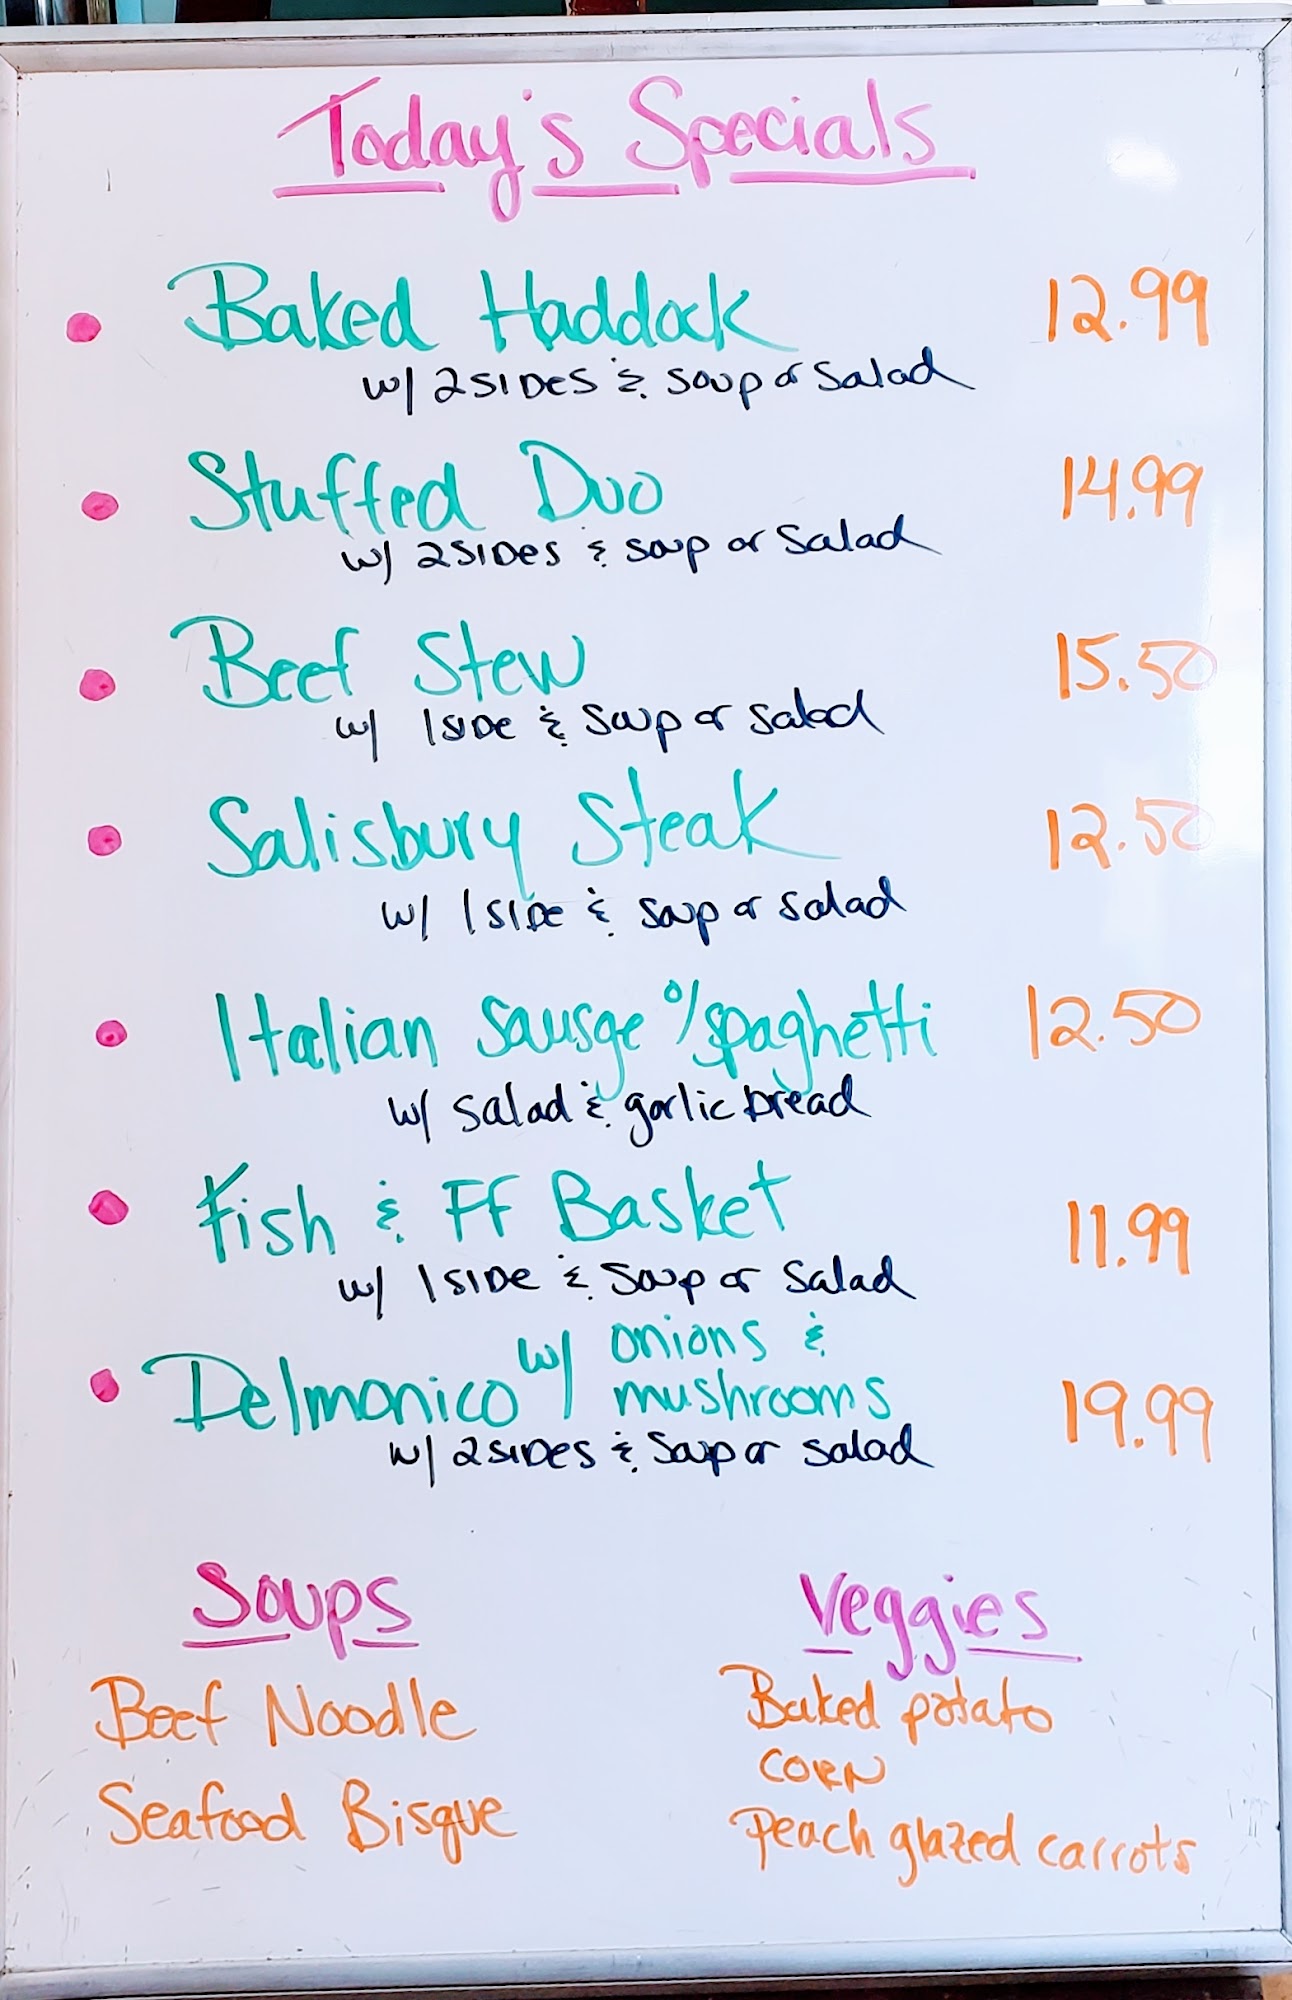 Today's Specials
Baked Haddock 12.99
w/ 2 SIDES & Soup or Salad
Stuffed Duo 14.99
w/ 2 SIDes & Soup or Salad
Beef Stew 15.50
w/ 1 SIDe & Soup or Salad
Salisbury Steak 12.50
w/ 1 SIDe & Soup or Salad
Italian Sausge o/spaghetti 12.50
w/ Salad & garlic bread
Fish & FF Basket 11.99
w/ 1 SIDe & Soup or Salad
Delmonico w/ onions &
mushrooms 19.99
w/ 2 SIDes & Soup or Salad
Soups
Beef Noodle
Seafood Bisque
Veggies
Baked potato
CORN
Peach glazed carrots